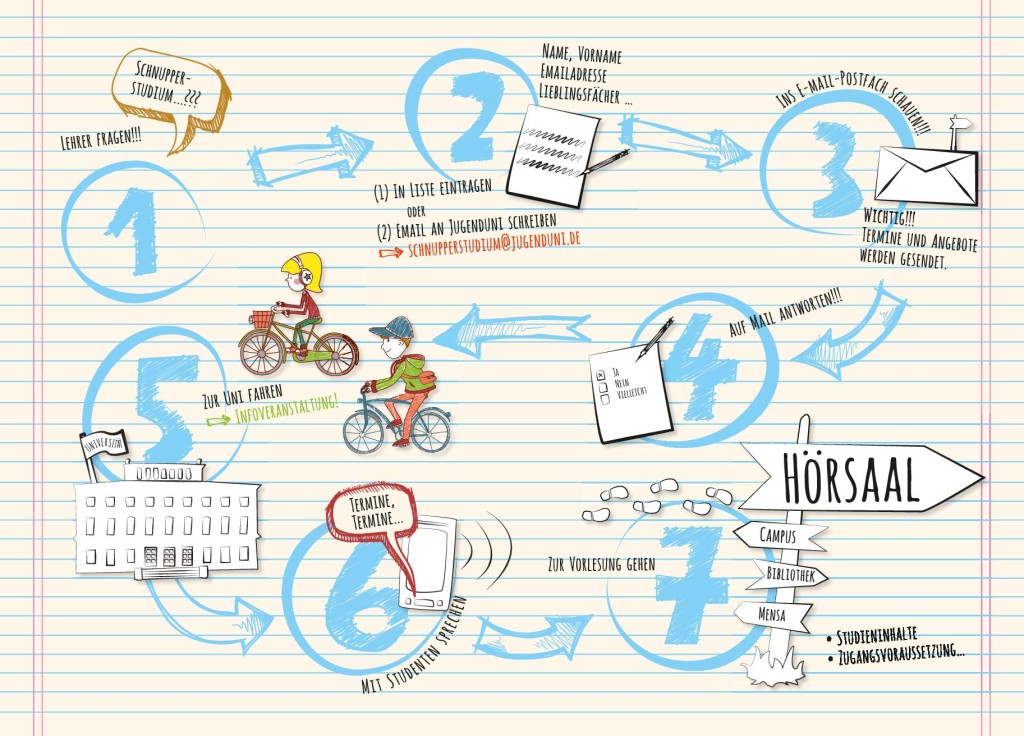 SCHNUPPER-
STUDIUM....???
LEHRER FRAGEN!!!
1
2
NAME, VORNAME
EMAILADRESSE
LIEBLINGSFÄCHER ...
(1) IN LISTE EINTRAGEN
ODER
(2) EMAIL AN JUGENDUNI SCHREIBEN
SCHNUPPERSTUDIUM@JUGENDUNI.DE
3
INS E-MAIL-POSTFACH SCHAUEN!!!
WICHTIG!!!
TERMINE UND ANGEBOTE
WERDEN GESENDET.
4
AUF MAIL ANTWORTEN!!!
JA
NEIN
VIELLEICHT
5
ZUR UNI FAHREN
INFOVERANSTALTUNG!
UNIVERSITÄT
6
TERMINE,
TERMINE...
MIT STUDENTEN SPRECHEN
7
ZUR VORLESUNG GEHEN
HÖRSAAL
CAMPUS
BIBLIOTHEK
MENSA
• STUDIENINHALTE
• ZUGANGSVORAUSSETZUNG...